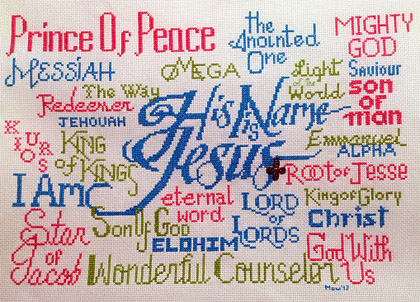 Prince Of Peace
the
Anointed
One
MIGHTY
GOD
MESSIAH
OMEGA
Light
of
World
Saviour
The Way
Redeemer
JEHOVAH
son
of
man
His Name
is
Jesus
KURIOS
KING
of KINGS
Emmanuel
ALPHA
Root of Jesse
I Am
eternal
word
LORD
of
LORDS
King of Glory
Christ
Star
of
Jacob
Son Of GOD
ELOHIM
God With
Us
Wonderful Counselor